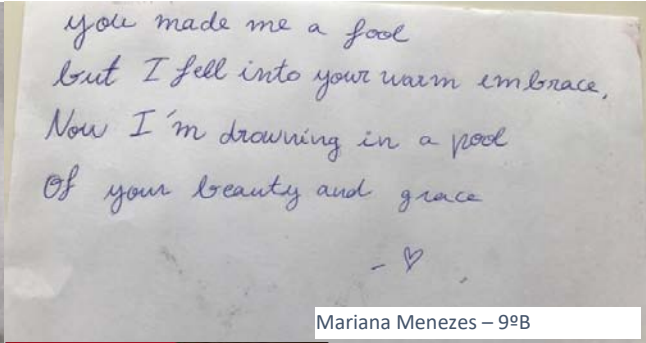 you made me a fool
but I fell into your warm embrace,
Now I'm drowning in a pool
Of your beauty and grace
- ♡
Mariana Menezes – 9ºB